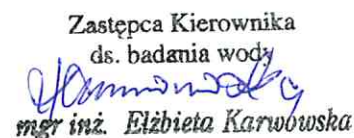 Zastępca Kierownika
ds. badania wody
mgr inż. Elżbieta Karwowska